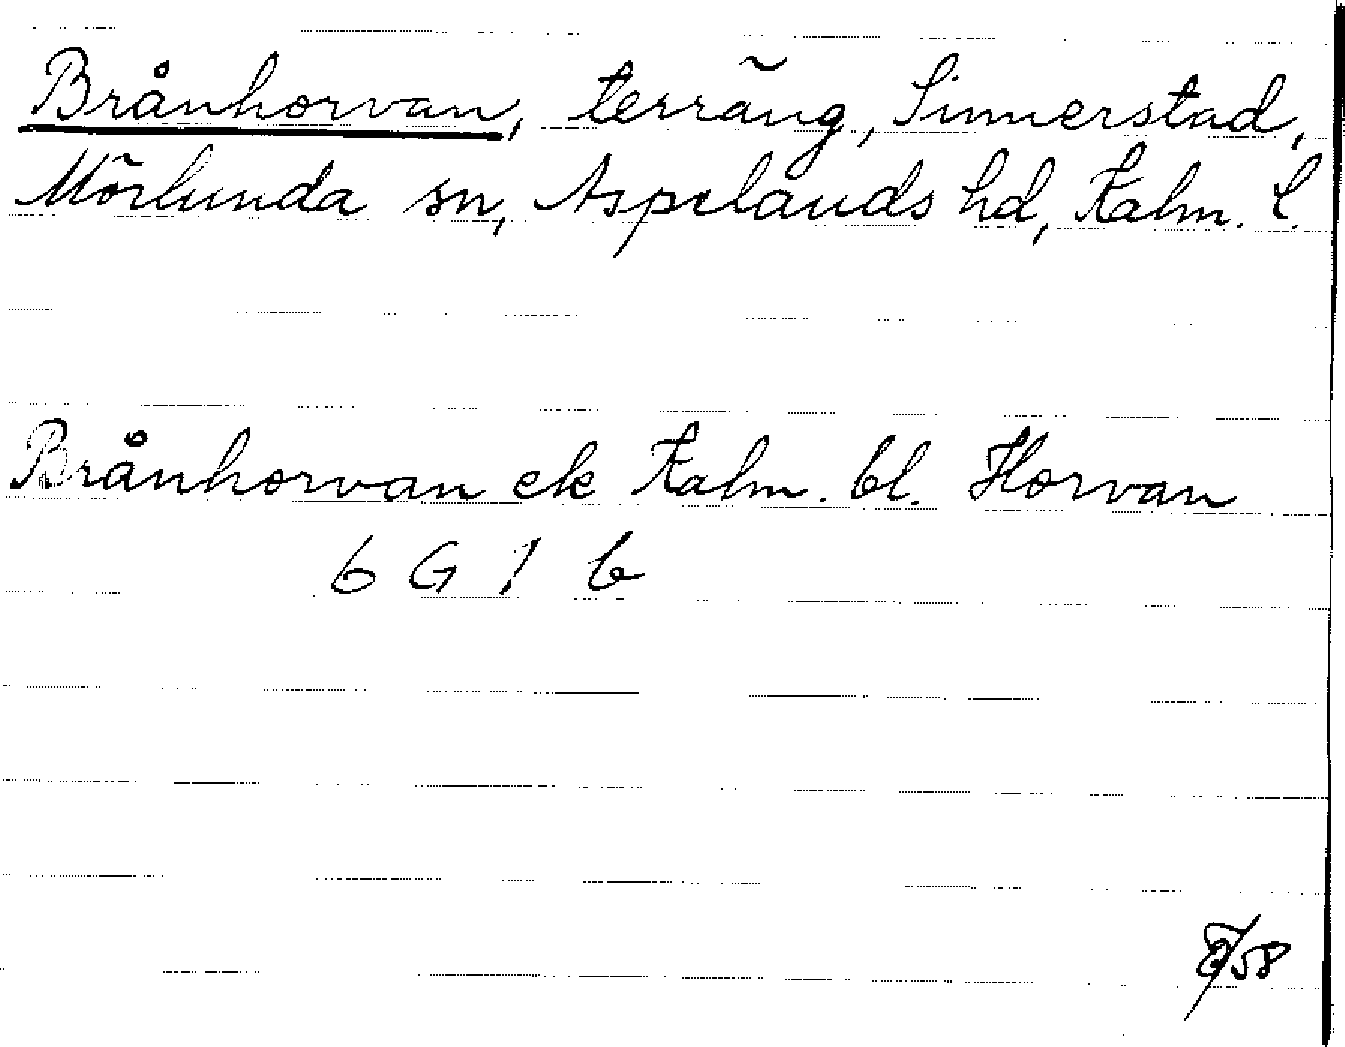 Brånhorvan, terräng, Sinnerstad,
Mörlunda sn, Aspelands hd, Kalm. l.
Brånhorvan ek Kalm. bl. Horvan
6 G 1 b
/58